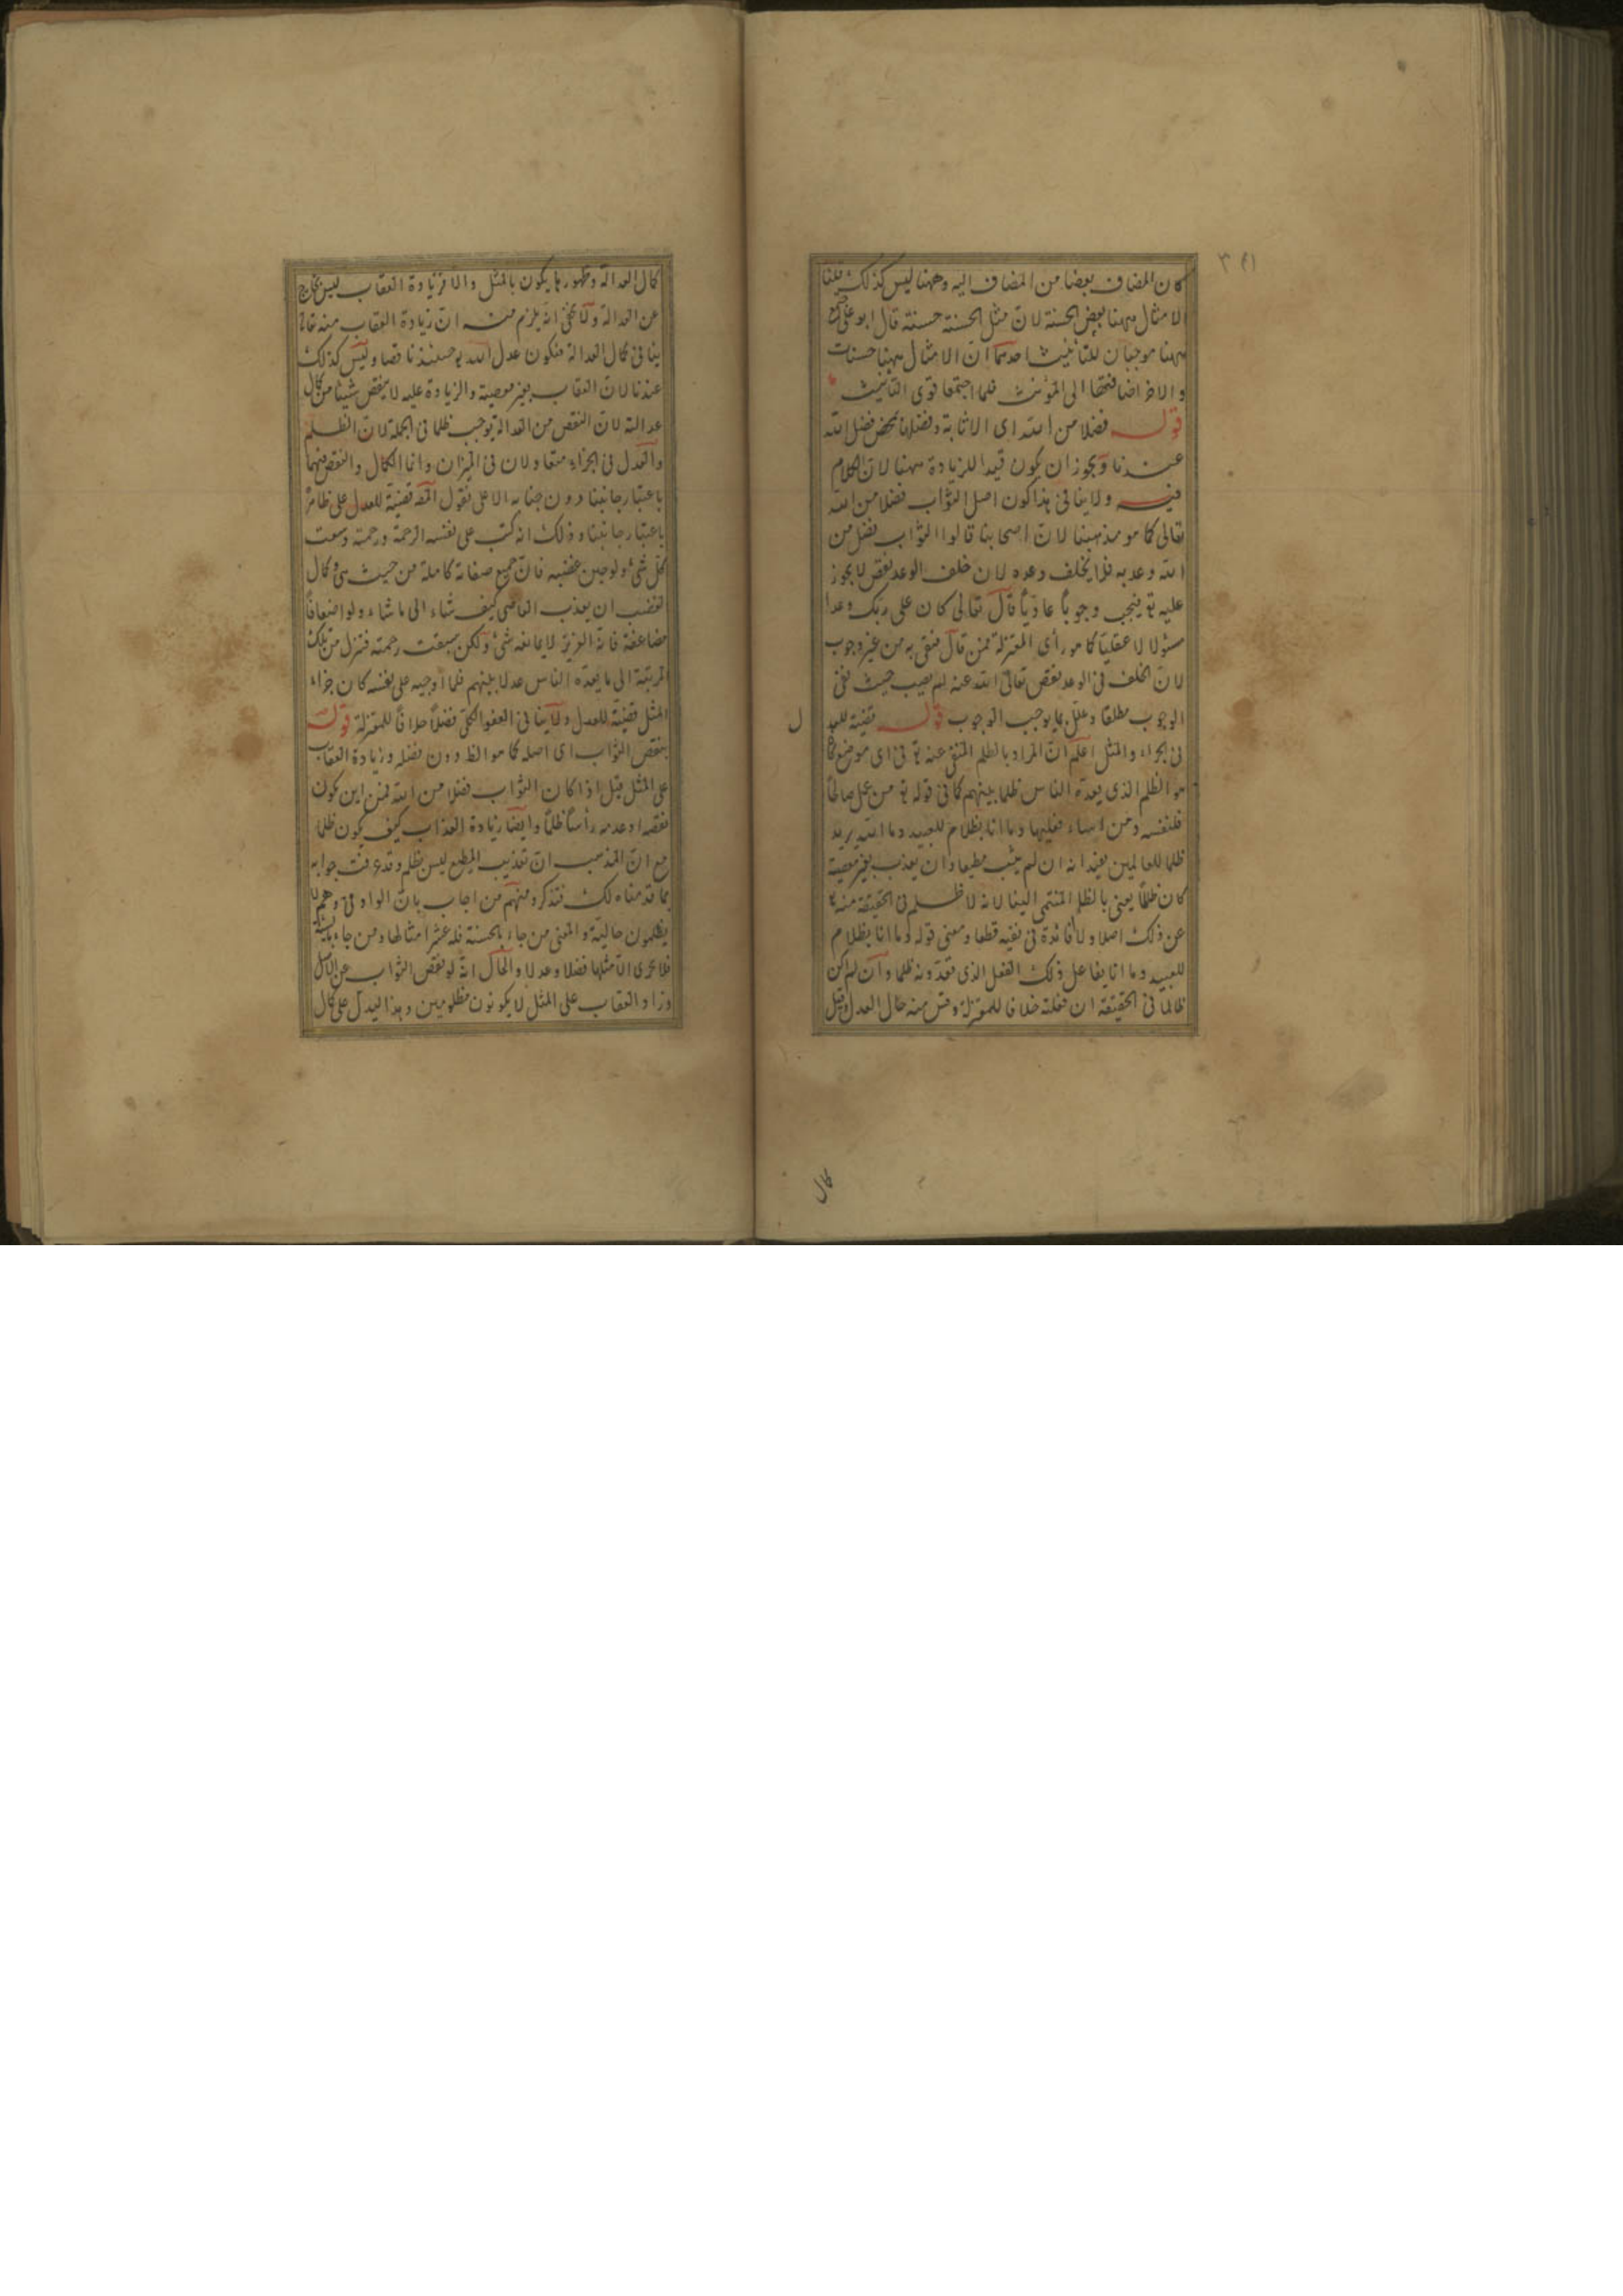 كان المضاف بعضا من المضاف اليه وههنا ليس كذلك قلنا
الامثال ههنا بعض الحسنة لان مثل الحسنة حسنة قال ابو على
ههنا موجبان للتأنيث احدهما ان الامثال ههنا حسنات
والاخر اضافتها الى المؤنث فلما اجتمعا قوى التأنيث
قوله فضلا من الله اى الاثابة وفضلها بمحض فضل الله
عندنا ويجوز ان يكون قيد الزيادة ههنا لان الكلام
فيه ولا ينافى هذا كون اصل الثواب فضلا من الله
تعالى كما هو مذهبنا لان اصحابنا قالوا الثواب فضل من
الله وعد به فلا يخلف وعده لان خلف الوعد نقص لا يجوز
عليه تع فيجب وجوبا عاديا قال تعالى كان على ربك وعدا
مسؤلا لا عقليا كما هو رأى المعتزلة فمن قال فيفى به من غير وجوب
لان الخلف فى الوعد نقص تعالى الله عنه لم يصب حيث نفى
الوجوب مطلقا وعلل بما يوجب الوجوب قوله قضية للعد
ل
فى الجزاء والمثل اعلم ان المراد بالظلم المنفى عنه تع فى اى موضع كان
هو الظلم الذى يعده الناس ظلما بينهم كما فى قوله تع من عمل صالحا
فلنفسه ومن اساء فعليها وما انا بظلام للعبيد وما الله يريد
ظلما للعالمين يفيد انه ان لم يثب مطيعا وان يعذب بغير معصية
كان ظلما يعنى بالظلم المنتمى الينا لانه لا ظلم فى الحقيقة منه تع
عن ذلك اصلا ولا فائدة فى نفيه قطعا ومعنى قوله وما انا بظلام
للعبيد وما انا بفاعل ذلك الفعل الذى تعدونه ظلما وان لم اكن
ظالما فى الحقيقة ان فعلته خلافا للمعتزلة وقس منه حال العدل وقيل
كمال
كمال العدالة وظهورها يكون بالمثل والا فزيادة العقاب ليس بخارج
عن العدالة ولا يخفى انه يلزم منه ان زيادة العقاب منه تعالى
ينافى كمال العدالة فيكون عدل الله تع حينئذ ناقصا وليس كذلك
عندنا لان العقاب بغير معصية والزيادة عليه لا ينقص شيئا من كمال
عدالته لان النقص من العدالة يوجب ظلما فى الجملة لان الظلم
والعدل فى الجزاء متعادلان فى الميزان وانما الكمال والنقص فيهما
باعتبار جانبنا دون جنابه الاعلى فقول المص قضية للعدل على ظاهره
باعتبار جانبنا وذلك انه كتب على نفسه الرحمة ورحمته وسعت
كل شئ ولو حين غضبه فان جميع صفاته كاملة من حيث هى وكمال
الغضب ان يعذب العاصى كيف شاء الى ما شاء ولو اضعافا
مضاعفة فانه العزيز لا يمانعه شئ ولكن سبقت رحمته فتنزل من تلك
المرتبة الى ما يعده الناس عدلا بينهم فلما اوجبه على نفسه كان جزاء
المثل قضية للعدل ولا ينافى العفو الكلى فضلا خلافا للمعتزلة قوله
بنقص الثواب اى اصله كما هو الظ دون فضله وزيادة العقاب
على المثل قيل اذا كان الثواب فضلا من الله فمن اين يكون
نقصه او عدمه رأسا ظلما وايضا زيادة العذاب كيف يكون ظلما
مع ان المذهب ان تعذيب المطيع ليس بظلم وقد عرفت جوابه
بما قدمناه لك فتذكر ومنهم من اجاب بان الواو فى وهم لا
يظلمون حالية والمعنى من جاء بالحسنة فله عشر امثالها ومن جاء بالسيئة
فلا يجزى الا مثلها فضلا وعدلا والحال انه لو نقص الثواب عن الاصل
وزاد العقاب على المثل لا يكونون مظلومين وهذا ليدل على كمال